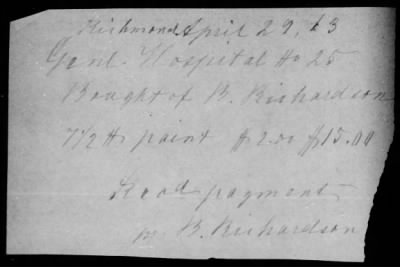 Richmond April 29, 63
Genl. Hospital No 25
Bought of B. Richardson
7 1/2 lb paint $2.00 $15.00
Recd payment
pr B. Richardson